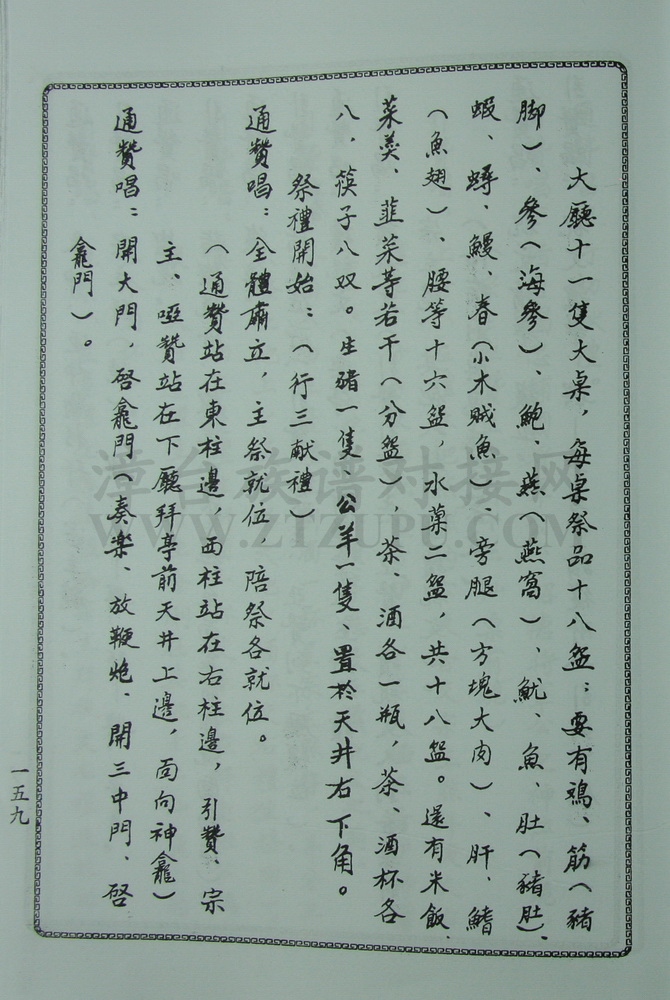 大廳十一隻大桌，每桌祭品十八盆：要有鴻、筋（豬
脚）、參（海參）、鮑、燕（燕窩）、魷、魚、肚（豬肚）、
蝦、蟳、鰻、春（小木賊魚）、旁腿（方塊大肉）、肝、鰭
（魚翅）、腰等十六盆，水菓二盆，共十八盆。還有米飯、
菜羹、韮菜等若干（分盆），茶、酒各一瓶，茶、酒杯各
八，筷子八双。生豬一隻、公羊一隻、置於天井右下角。
祭禮開始：（行三献禮）
通贊唱：全體肅立，主祭就位，陪祭各就位。
（通贊站在東柱邊，西柱站在右柱邊，引贊、宗
主、啞贊站在下廳拜亭前天井上邊，面向神龕）
通贊唱：開大門，啓龕門（奏樂、放鞭炮、開三中門、啓
龕門）。
一五九
漳台族谱对接网
WWW.ZTZUPU.COM